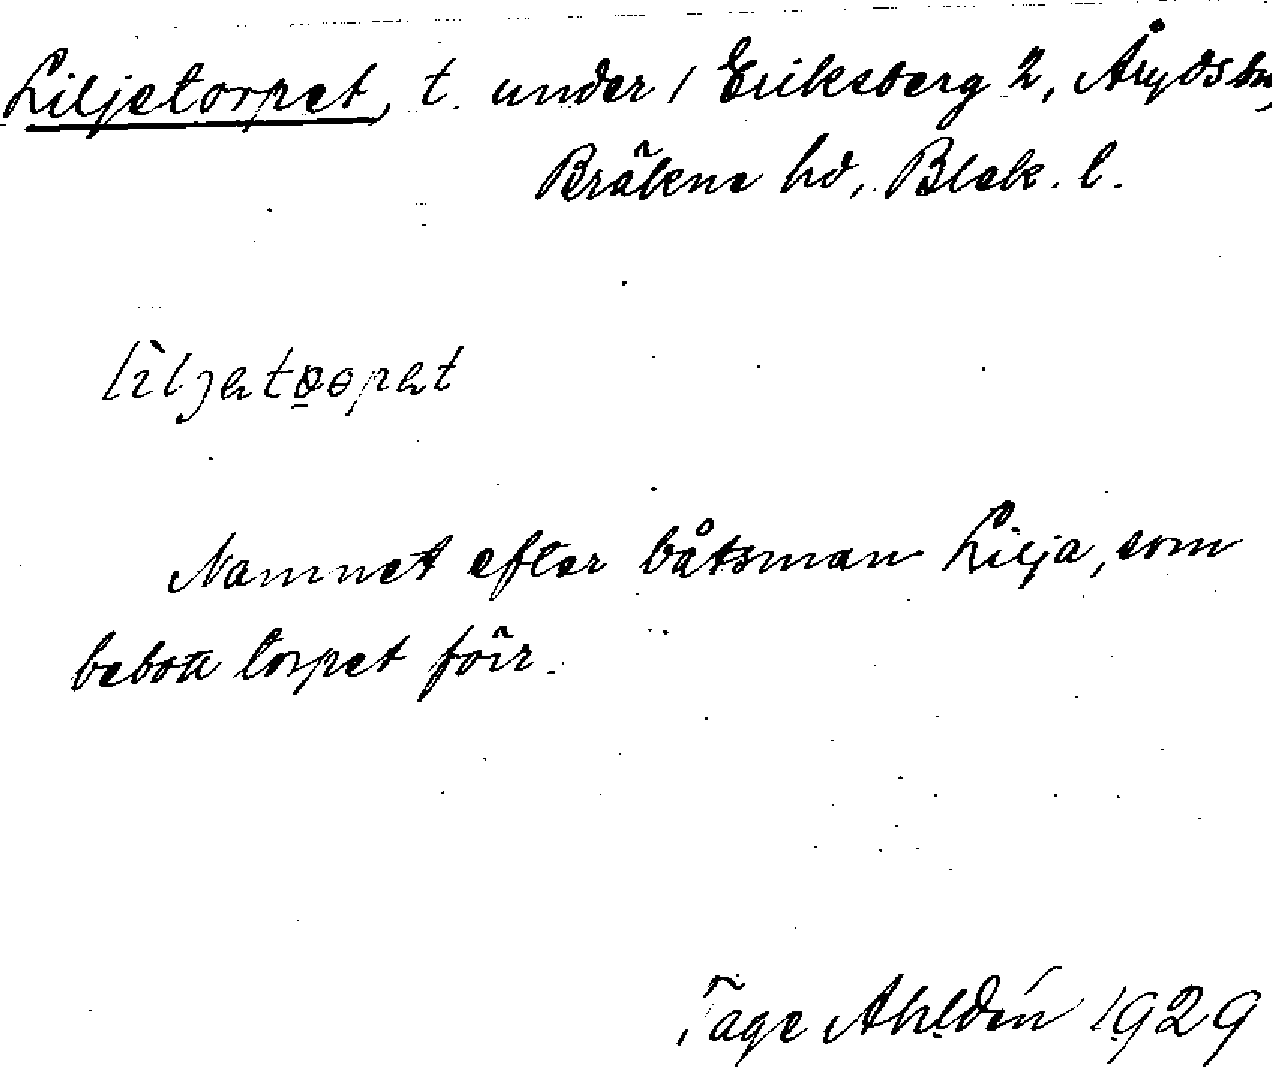 Liljetorpet, t. under 1 Eriksberg 2, Åryds sn,
Bräkne hd, Blek. l.
Namnet efter båtsman Lilja, som
bebott torpet förr.
Tage Ahldén 1929